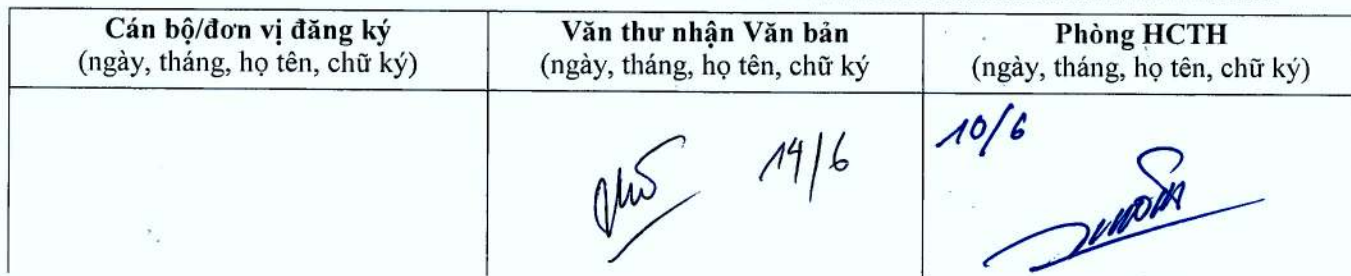 Cán bộ/đơn vị đăng ký
(ngày, tháng, họ tên, chữ ký)
Văn thư nhận Văn bản
(ngày, tháng, họ tên, chữ ký
Phòng HCTH
(ngày, tháng, họ tên, chữ ký)
14/6
10/6